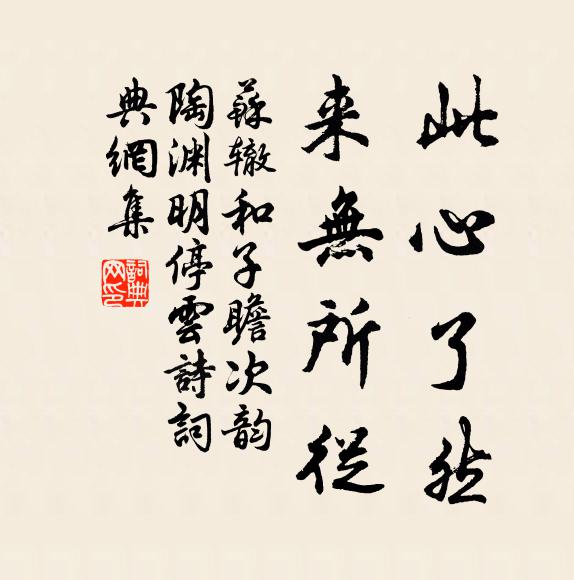 此心了然
来無所從
蘇辙和子瞻次韵
陶渊明停雲詩詞
典網集
詞典
网印